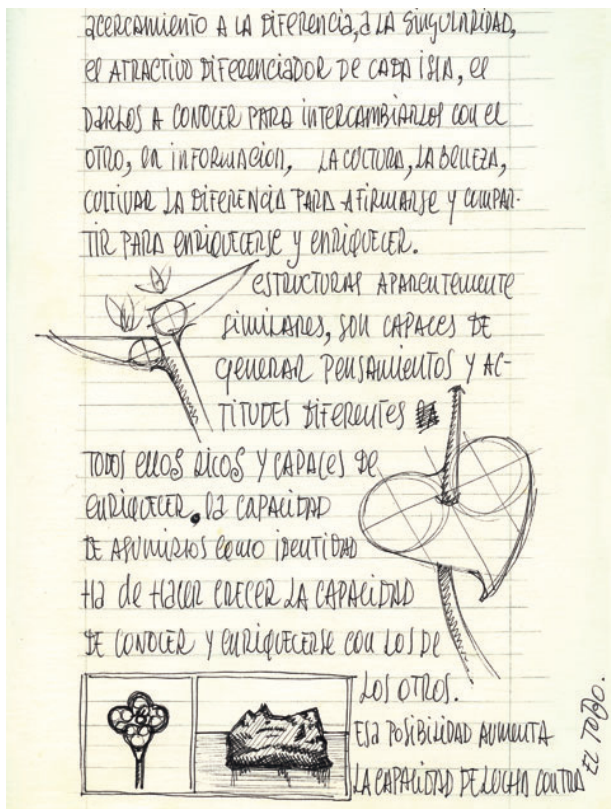 acercamiento a la diferencia, a la singularidad,
el atractivo diferenciador de cada isla, el
darlos a conocer para intercambiarlos con el
otro, en informacion, la cultura, la belleza,
cultivar la diferencia para afirmarse y compar-
tir para enriquecerse y enriquecer.
estructuras aparentemente
similares, son capaces de
generar pensamientos y ac-
titudes diferentes
todos ellos ricos y capaces de
enriquecer. la capacidad
de asumirlos como identidad
ha de hacer crecer la capacidad
de conocer y enriquecerse con los de
los otros.
esa posibilidad aumenta
la capacidad de lucha contra
EL TORO.